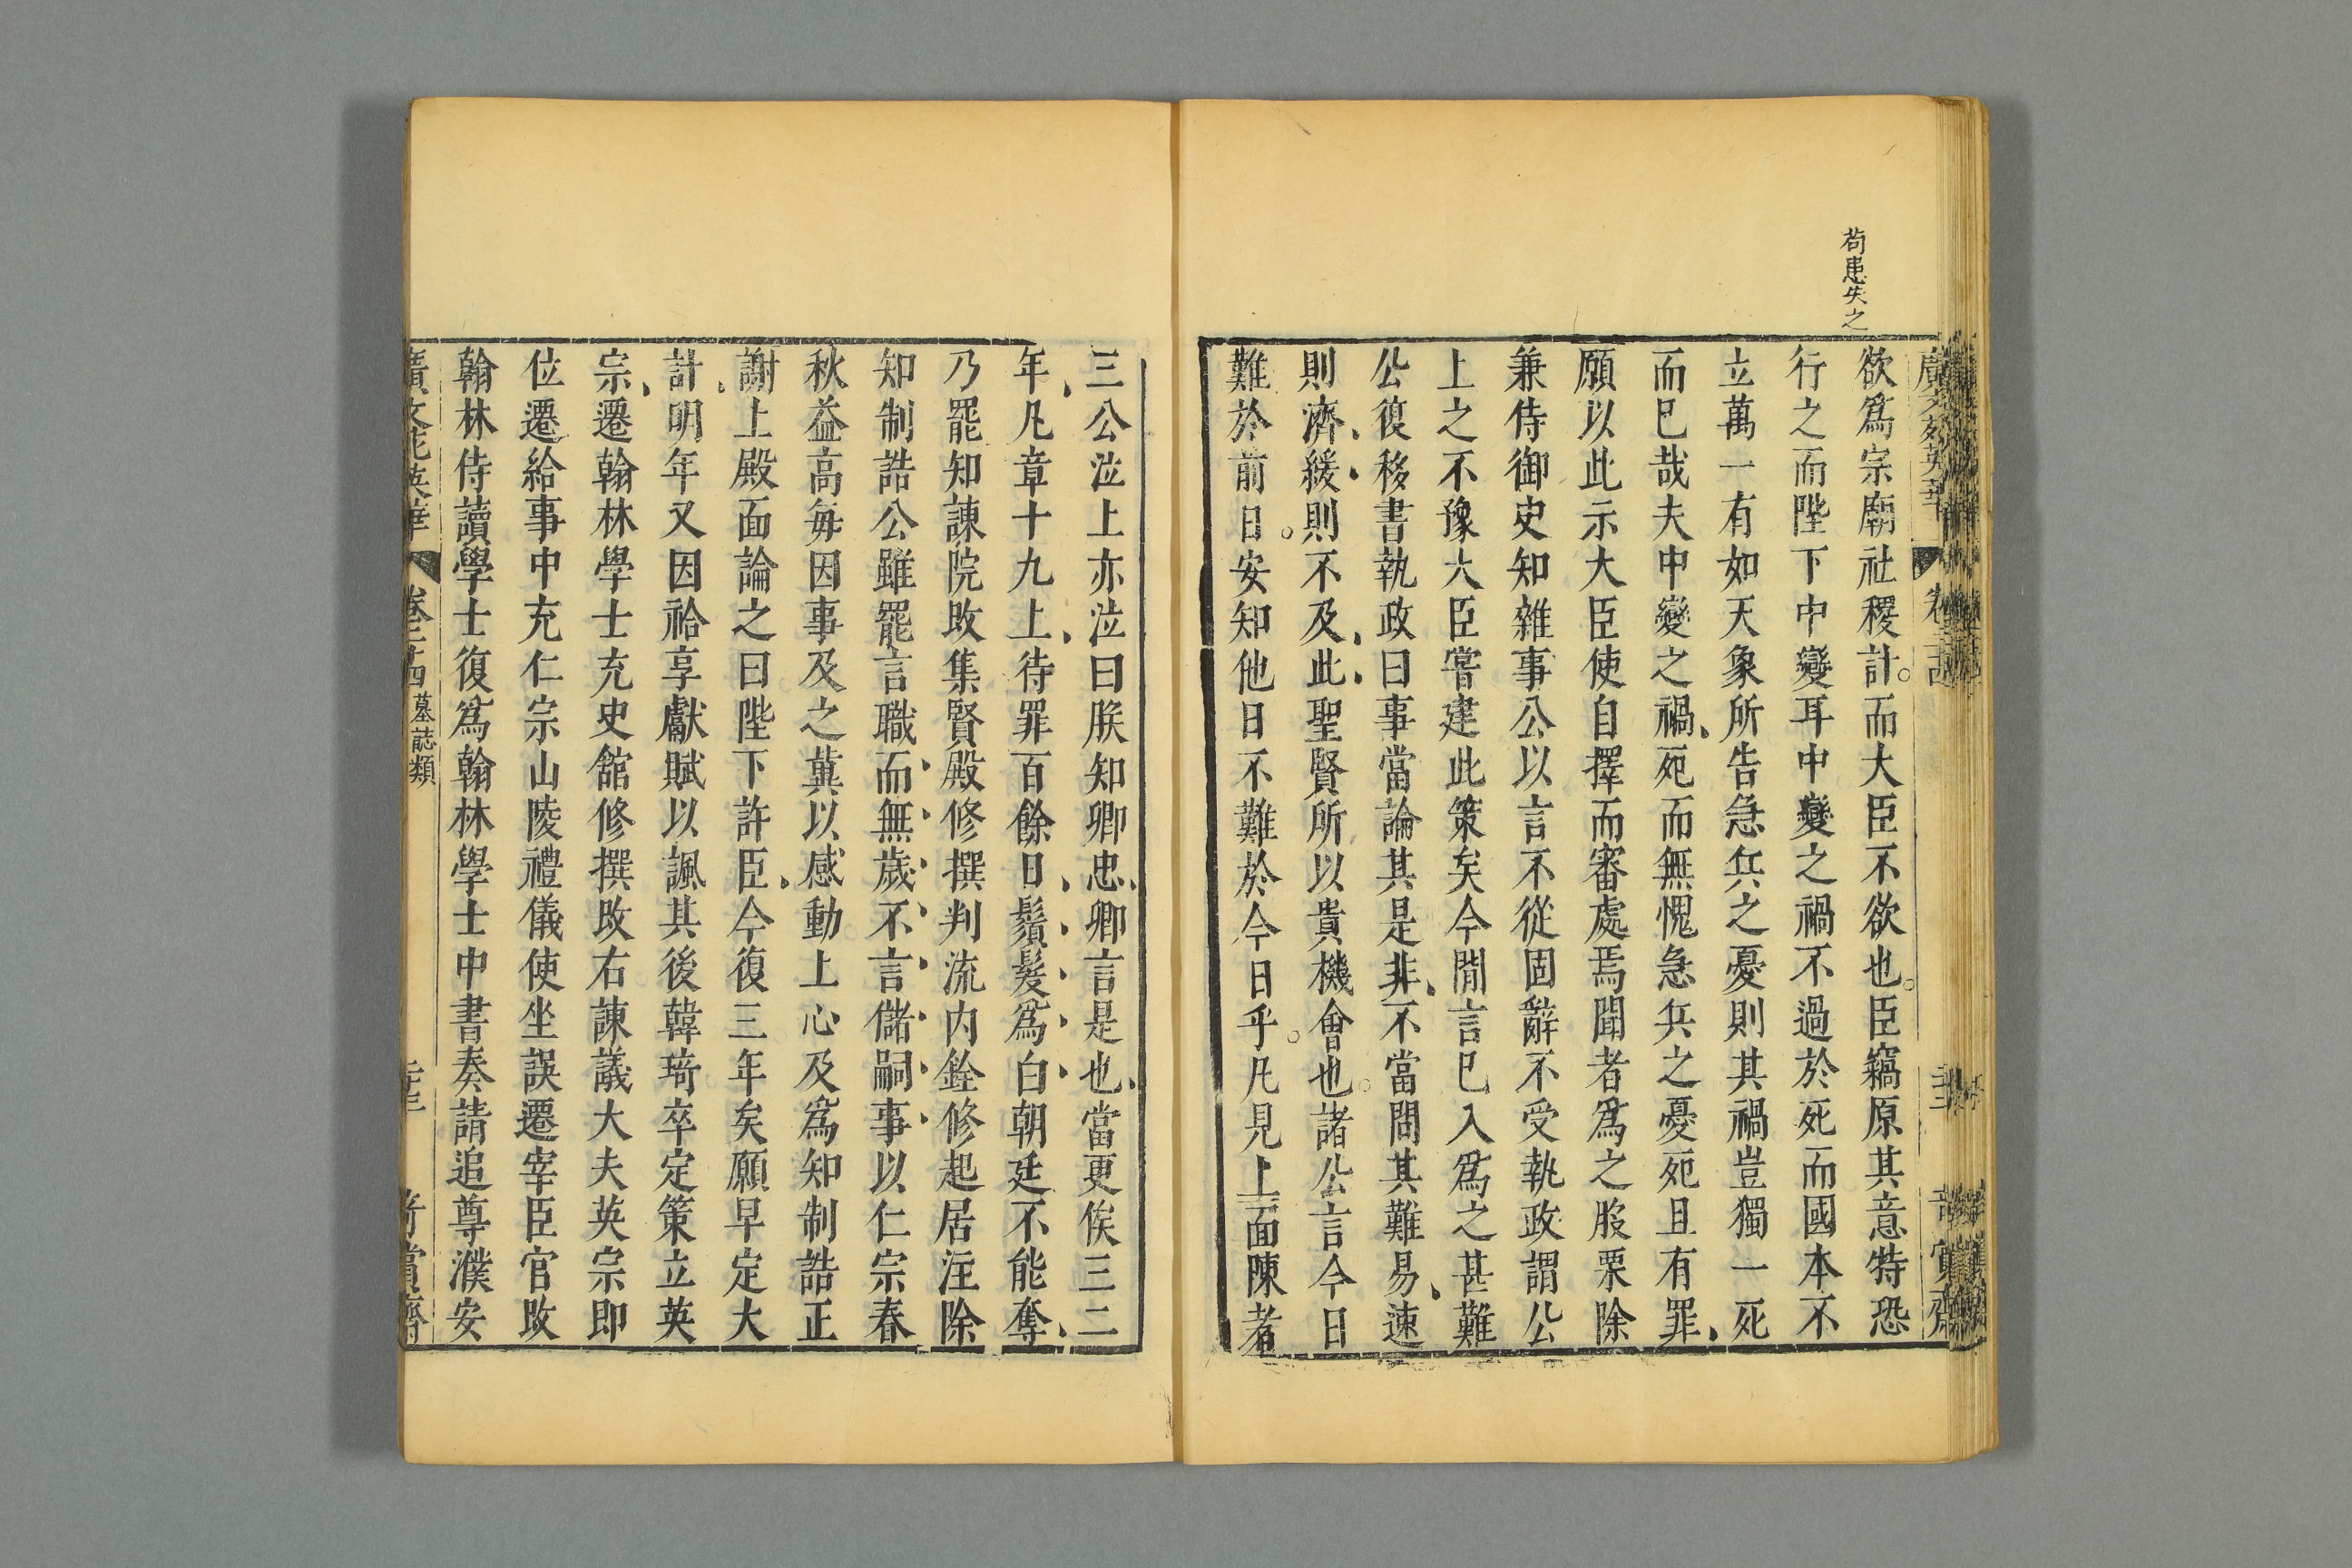 苟患失之
欲爲宗廟社稷計。而大臣不欲也。臣竊原其意特恐
行之而陛下中變耳中變之禍不過於死而國本不
立萬一有如天象所告急兵之憂則其禍豈獨一死
而已哉夫中變之禍、死而無愧急兵之憂死且有罪、
願以此示大臣使自擇而審處焉聞者爲之股栗除
兼侍御史知雜事公以言不從固辭不受執政謂公
上之不豫大臣嘗建此策矣今閒言已入爲之甚難
公復移書執政曰事當論其是非、不當問其難易、速
則濟、緩、則不及、此、聖賢所以貴機會也。諸公言今日
難於前日。安知他日不難於今日乎。凡見上面陳者
三公泣上亦泣曰朕知卿忠、卿言是也、當更俟三二
年、凡章十九上、待罪百餘日、鬚、髮、爲、白、朝廷不能奪、
乃罷知諫院改集賢殿修撰判流内銓修起居注除
知制誥公雖罷言職而、無、歲、不、言、儲、嗣、事、以仁宗春
秋益高每因事及之冀以感動上心及爲知制誥正
謝上殿面論之曰陛下許臣、今復三年矣願早定大
計、明年又因祫享獻賦以諷其後韓琦卒定策立英
宗、遷翰林學士充史館修撰改右諫議大夫英宗即
位遷給事中充仁宗山陵禮儀使坐誤遷宰臣官改
翰林侍讀學士復爲翰林學士中書奏請追尊濮安
廣文苑英華 卷二十四 墓誌類